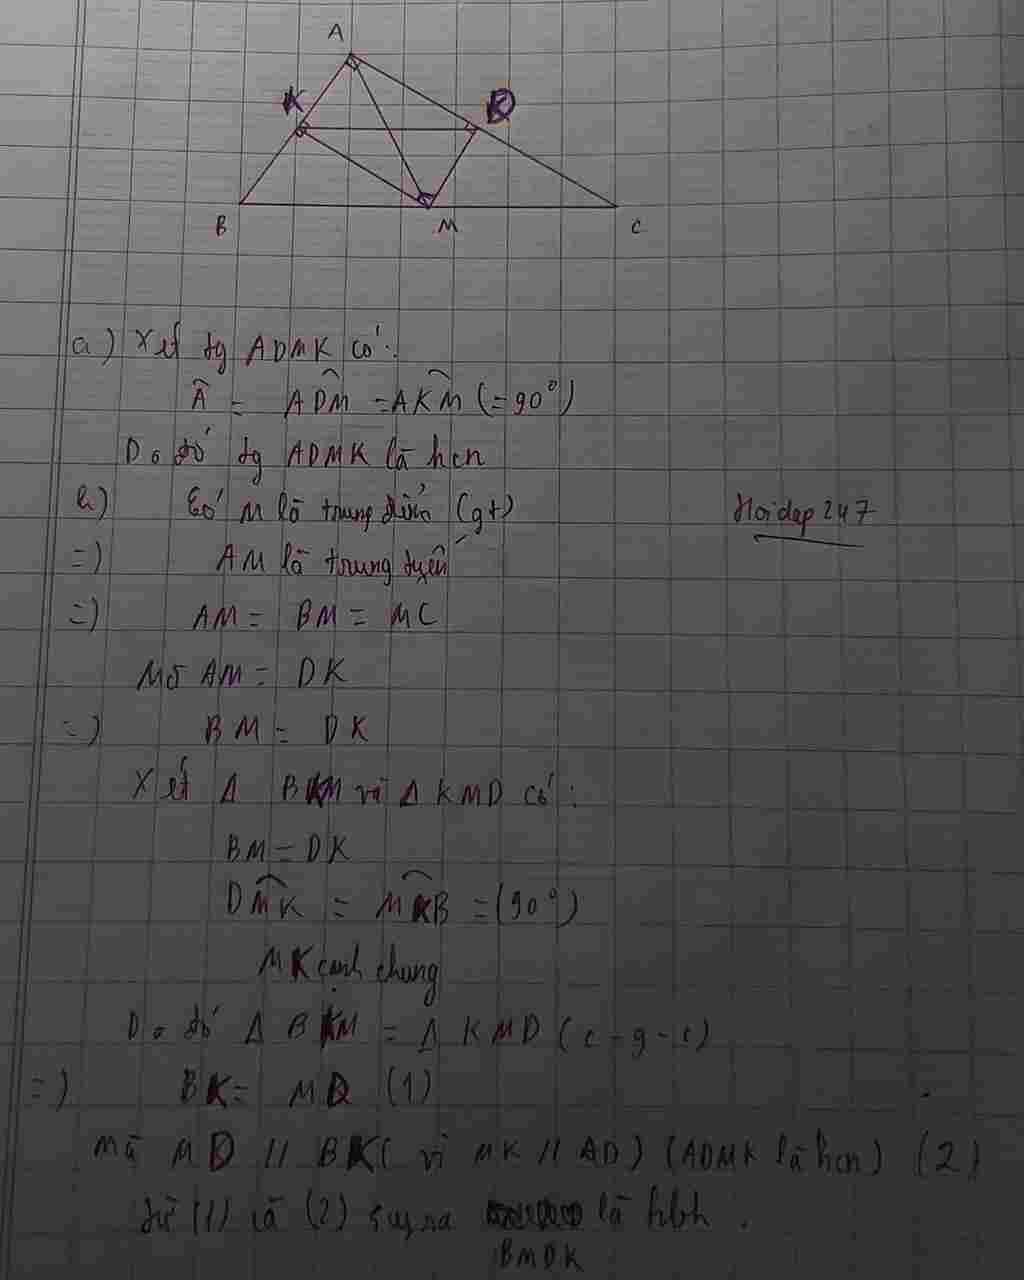 A
K
D
B
M
C
a) Xét tg ADMK có:
Â = ADM̂ = AKM̂ (=90°)
Do đó tg ADMK là hcn
b) Có M là trung điểm (gt)
Hoidap247
=) AM là trung tuyến
=) AM = BM = MC
Mà AM = DK
=) BM = DK
Xét Δ BKM và Δ KMD có:
BM = DK
DM̂K = MK̂B = (90°)
MK cạnh chung
Do đó Δ BKM = Δ KMD (c-g-c)
=) BK = MD (1)
mà MD // BK ( vì MK // AD) (ADMK là hcn) (2)
từ (1) và (2) suy ra là hbh.
BMDK